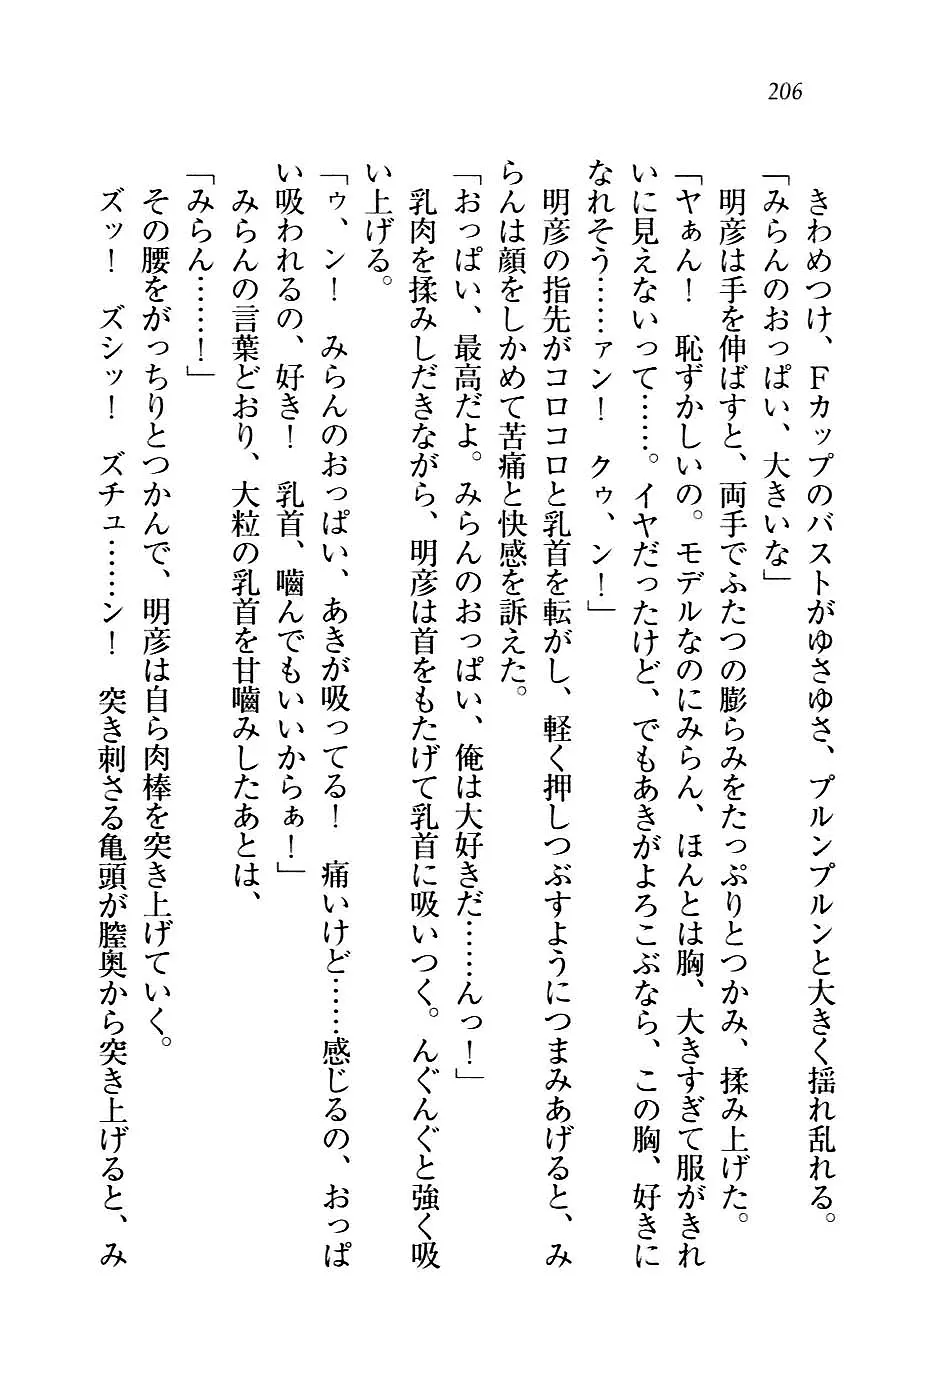 206
きわめつけ、Fカップのバストがゆさゆさ、プルンプルンと大きく揺れ乱れる。
「みらんのおっぱい、大きいな」
明彦は手を伸ばすと、両手でふたつの膨らみをたっぷりとつかみ、揉み上げた。
「ヤぁん！　恥ずかしいの。モデルなのにみらん、ほんとは胸、大きすぎて服がきれ
いに見えないって……。イヤだったけど、でもあきがよろこぶなら、この胸、好きに
なれそう……ァン！　クゥ、ン！」
明彦の指先がコロコロと乳首を転がし、軽く押しつぶすようにつまみあげると、み
らんは顔をしかめて苦痛と快感を訴えた。
「おっぱい、最高だよ。みらんのおっぱい、俺は大好きだ……んっ！」
乳肉を揉みしだきながら、明彦は首をもたげて乳首に吸いつく。んぐんぐと強く吸
い上げる。
「ゥ、ン！　みらんのおっぱい、あきが吸ってる！　痛いけど……感じるの、おっぱ
い吸われるの、好き！　乳首、嚙んでもいいからぁ！」
みらんの言葉どおり、大粒の乳首を甘嚙みしたあとは、
「みらん……！」
その腰をがっちりとつかんで、明彦は自ら肉棒を突き上げていく。
ズッ！　ズシッ！　ズチュ……ン！　突き刺さる亀頭が膣奥から突き上げると、み